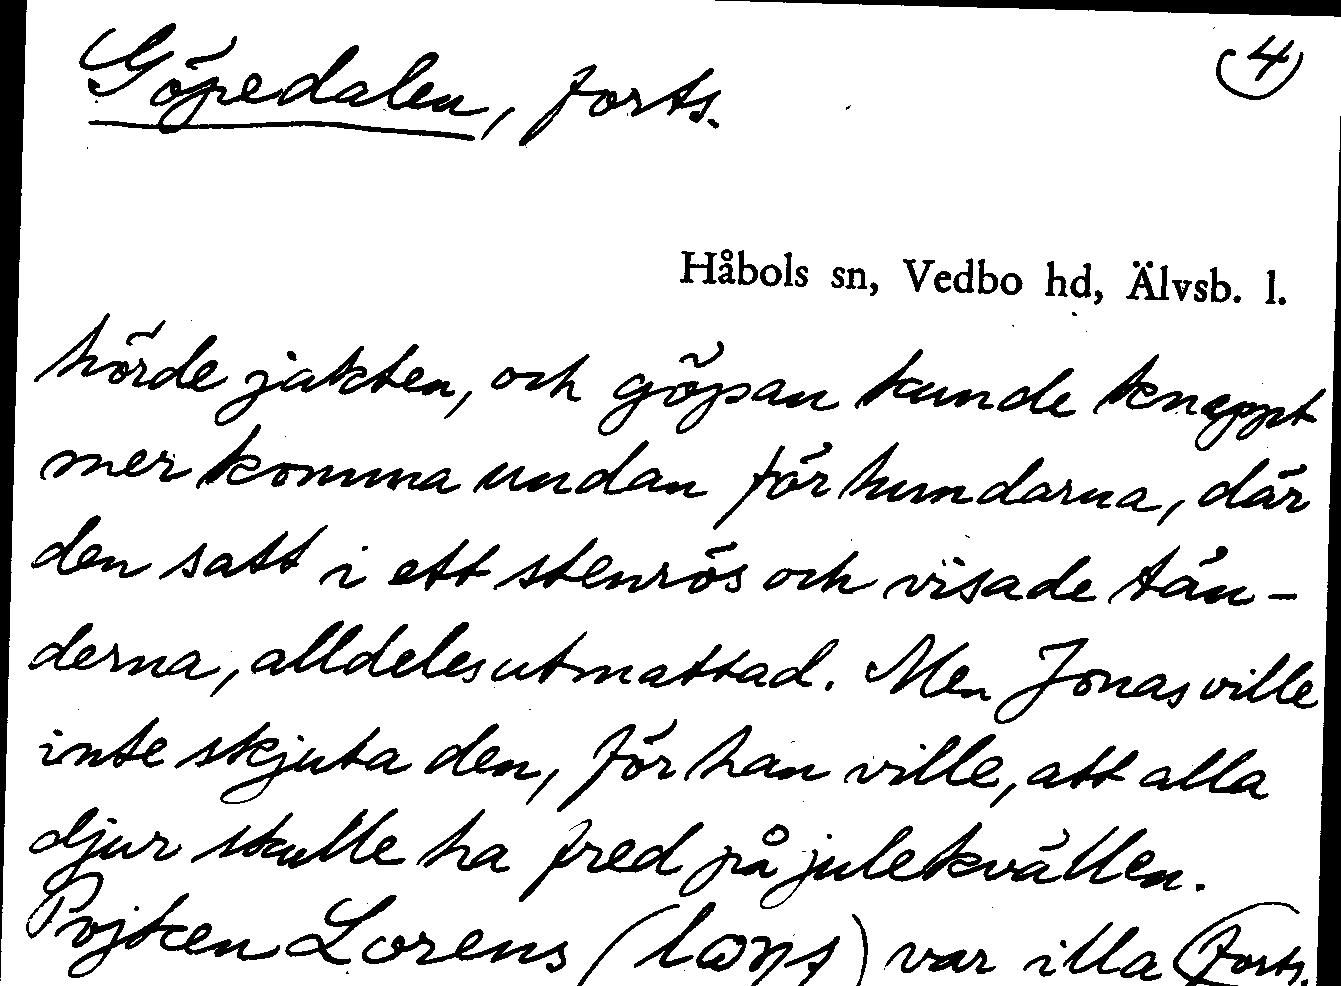 Göpedalen, forts.
4
Håbols sn, Vedbo hd, Älvsb. l.
hörde jakten, och göpan kunde knappt
mer komma undan för hundarna, där
den satt i ett stenrös och visade tän-
derna, alldeles utmattad. Men Jonas ville
inte skjuta den, för han ville, att alla
djur skulle ha fred på julekvällen.
Pojken Lorens ( ) var illa (Forts.